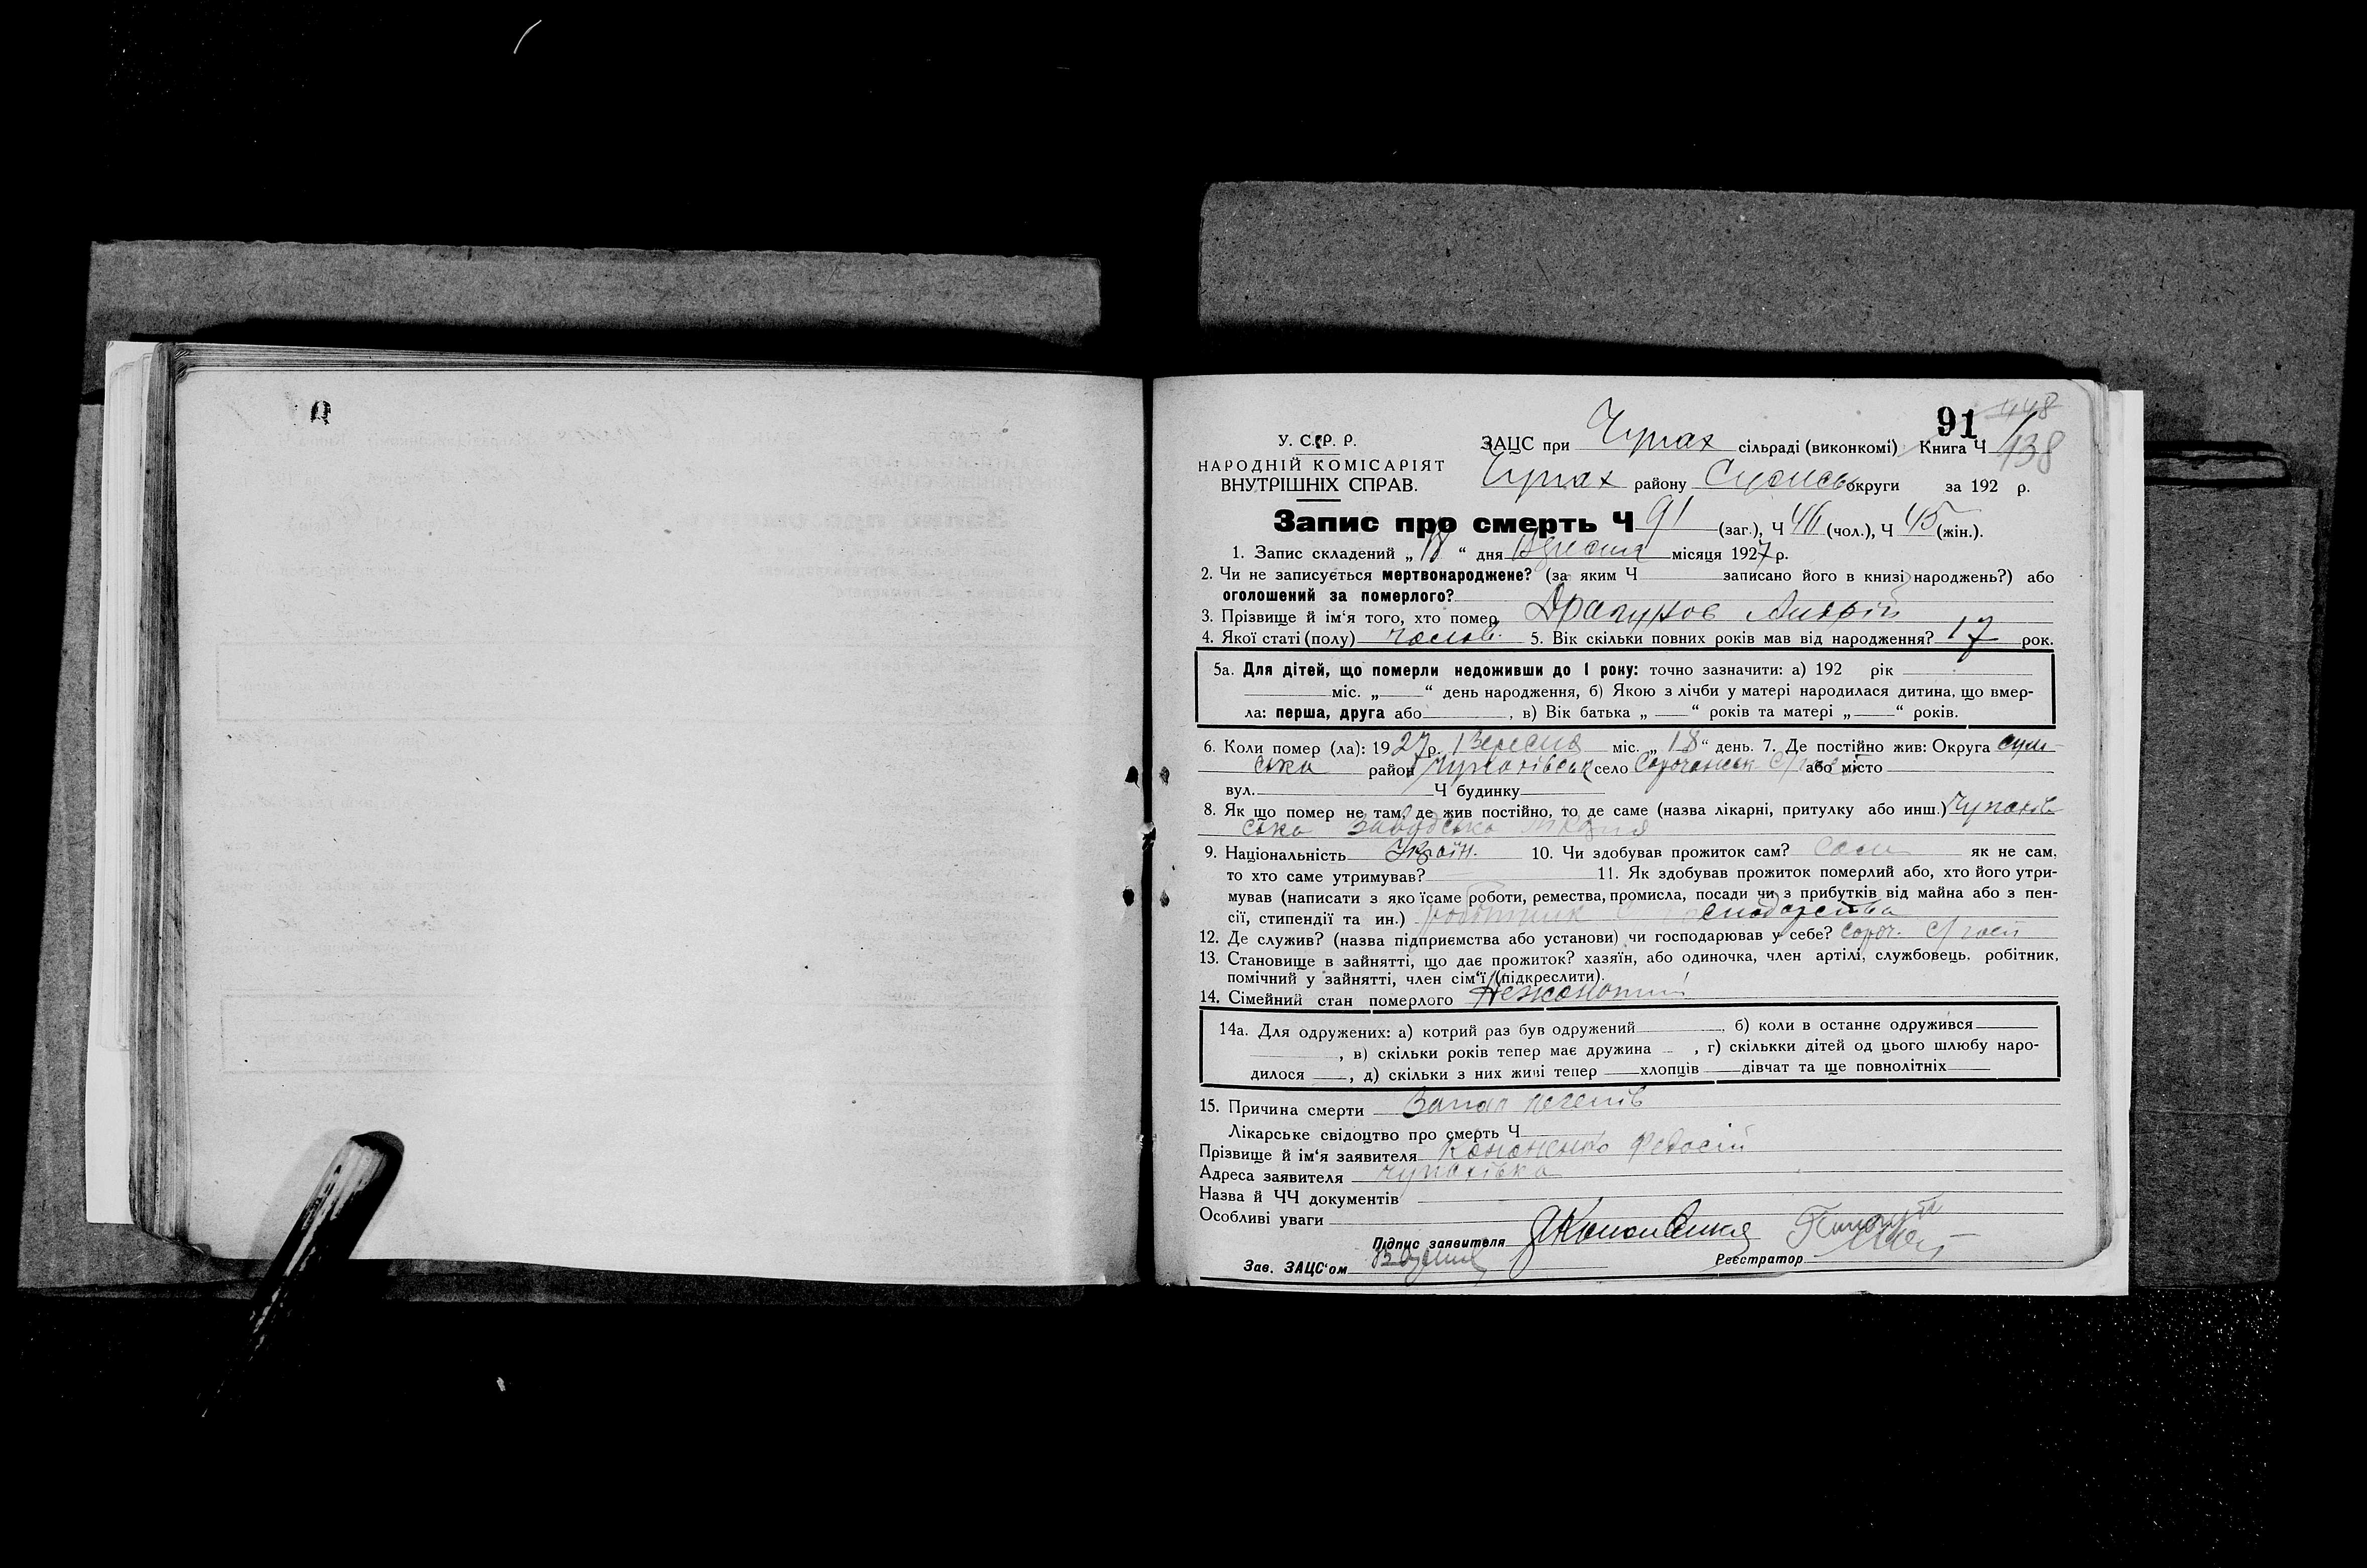 91 448
У. С. Р. Р. ЗАЦС при Чупах сільраді (виконкомі) Книга Ч 138
НАРОДНІЙ КОМІСАРІЯТ
ВНУТРІШНІХ СПРАВ. Чупах району Сумськ округи за 192 р.
Запис про смерть Ч 91 (заг.), Ч 46 (чол.), Ч 45 (жін.).
1. Запис складений „ 18 “ дня Вересня місяця 1927 р.
2. Чи не записується мертвонароджене? (за яким Ч записано його в книзі народжень?) або
оголошений за померлого?
3. Прізвище й ім‘я того, хто помер Драгунов Андрій
4. Якої статі (полу) чолов. 5. Вік скільки повних років мав від народження? 17 рок.
5а. Для дітей, що померли недоживши до 1 року: точно зазначити: а) 192 рік
міс. „ “ день народження, б) Якою з лічби у матері народилася дитина, що вмер-
ла: перша, друга або , в) Вік батька „ “ років та матері „ “ років.
6. Коли помер (ла): 1927 р. Вересня міс. „ 18 “ день. 7. Де постійно жив: Округа Сум-
ська район Чупахівськ село С/госп або місто
вул. Ч будинку
8. Як що помер не там, де жив постійно, то де саме (назва лікарні, притулку або инш.) Чупахів
ська Заводська лікарня
9. Національність Україн. 10. Чи здобував прожиток сам? Сам як не сам,
то хто саме утримував? 11. Як здобував прожиток померлий або, хто його утри-
мував (написати з якоїсаме роботи, ремества, промисла, посади чи з прибутків від майна або з пен-
сії, стипендії та ин.) робітник сподарства
12. Де служив? (назва підприємства або установи) чи господарював у себе? Сороч. С/госп
13. Становище в зайнятті, що дає прожиток? хазяїн, або одиночка, член артілі, службовець, робітник,
помічний у зайнятті, член сім‘ї (підкреслити).
14. Сімейний стан померлого Нежонатий
14а. Для одружених: а) котрий раз був одружений , б) коли в останнє одружився
, в) скільки років тепер має дружина , г) скількки дітей од цього шлюбу наро-
дилося , д) скільки з них живі тепер хлопців дівчат та ще повнолітніх
15. Причина смерти Запал легенів
Лікарське свідоцтво про смерть Ч
Прізвище й ім‘я заявителя Кононенко Федосій
Адреса заявителя Чупахівка
Назва й ЧЧ документів
Особливі уваги
Підпис заявителя Кононенко
Зав. ЗАЦС‘ом Реєстратор